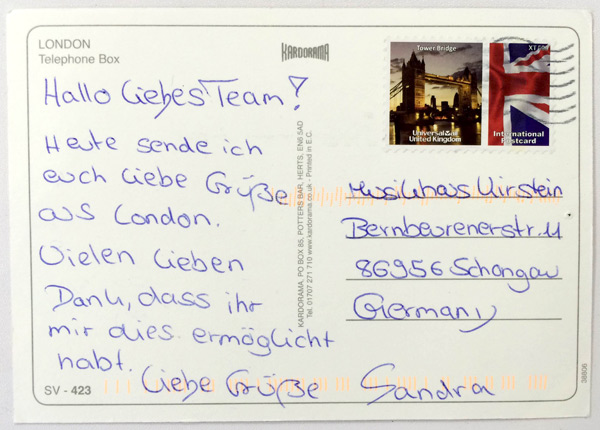 LONDON
Telephone Box
KARDORAMA
Hallo liebes Team!
Heute sende ich
euch liebe Grüße
aus London.
Vielen lieben
Dank, dass ihr
mir dies ermöglicht
habt.
Liebe Grüße Sandra
SV - 423
KARDORAMA, PO BOX 85, POTTERS BAR, HERTS, EN6 5AD
Tel. 01707 271 710 www.kardorama.co.uk - Printed in E.C.
Tower Bridge
Universal Mail
United Kingdom
International
Postcard
Musikhaus Kirstein
Bernbeurenerstr. 11
86956 Schongau
Germany